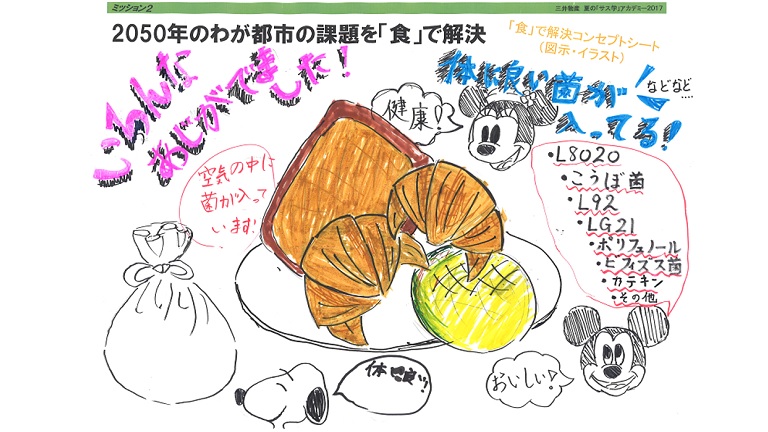 ミッション2
三井物産 夏の「サス学」アカデミー2017
2050年のわが都市の課題を「食」で解決
「食」で解決コンセプトシート
(図示・イラスト)
いろんな
あじがでました!
健康!
体に良い菌が
入ってる!
などなど…
空気の中に
菌が入って
います!
・L8020
・こうぼ菌
・L92
・LG21
・ポリフェノール
・ビフィズス菌
・カテキン
・その他
体に良い!
おいしい♪